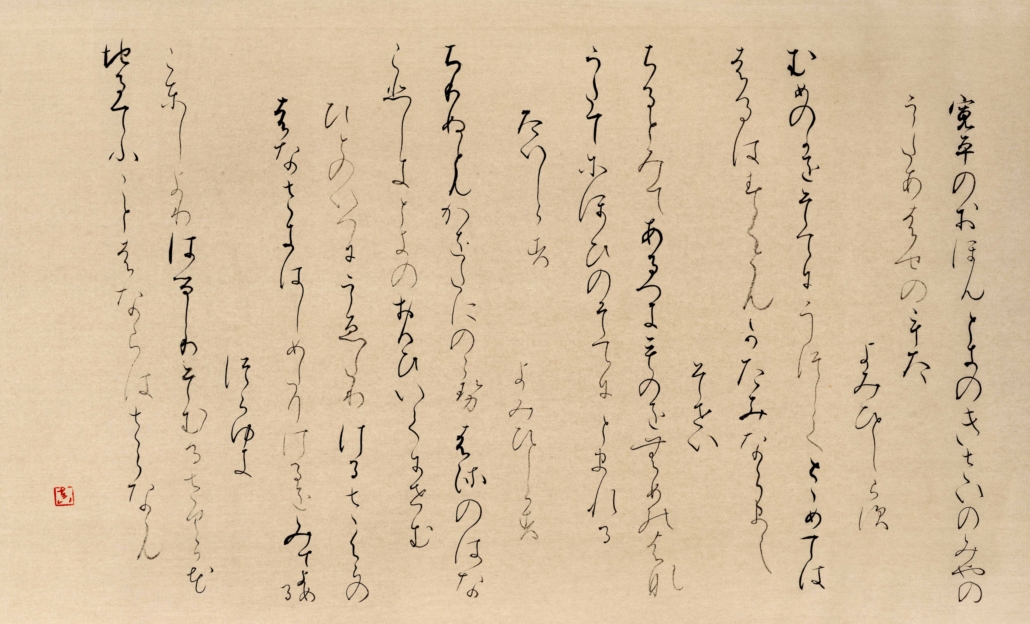 寛平のおほんときのきさいのみやの
うたあはせのうた
よみひとしらす
むめのかをそてにうつしてとゝめては
はるはすくともかたみならまし
そせい
ちるとみてあるへきものをむめのはな
うたてにほひのそてにとまれる
たいしらす
よみひとしらす
ちりぬともかをたにのこせむめのはな
こひしきときのおもひいてにせむ
ひとのいへにうゑたりけるさくらの
はなさきはしめたりけるをみてよめる
つらゆき
ことしよりはるしりそむるさくらはな
ちるといふことはならはさらなん